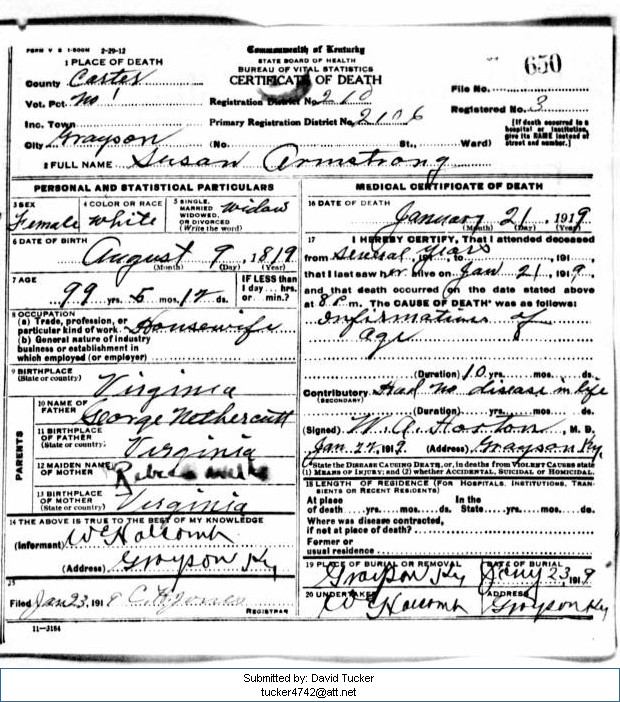 FORM V S 1-500M 2-29-12
Commonwealth of Kentucky
STATE BOARD OF HEALTH
BUREAU OF VITAL STATISTICS
CERTIFICATE OF DEATH
650
1 PLACE OF DEATH
County Carter
Vot. Pct. No 1
Inc. Town
City Grayson
Registration District No. 210
Primary Registration District No. 2106
(No. St., Ward)
File No.
Registered No. 3
[If death occurred in a
hospital or institution,
give its NAME instead of
street and number.]
2 FULL NAME Susan Armstrong
PERSONAL AND STATISTICAL PARTICULARS
3 SEX
Female
4 COLOR OR RACE
White
5 SINGLE,
MARRIED
WIDOWED,
OR DIVORCED
(Write the word)
Widow
6 DATE OF BIRTH
August 9, 1819
(Month) (Day) (Year)
7 AGE
99 yrs. 5 mos. 12 ds.
IF LESS than
1 day.... hrs.
or.... min.?
8 OCCUPATION
(a) Trade, profession, or
particular kind of work. Housewife
(b) General nature of industry
business or establishment in
which employed (or employer)
9 BIRTHPLACE
(State or country)
Virginia
PARENTS
10 NAME OF
FATHER
George Nethercutt
11 BIRTHPLACE
OF FATHER
(State or country)
Virginia
12 MAIDEN NAME
OF MOTHER
13 BIRTHPLACE
OF MOTHER
(State or country)
Virginia
14 THE ABOVE IS TRUE TO THE BEST OF MY KNOWLEDGE
(Informant) W C Holcomb
(Address) Grayson Ky
15
Filed Jan 23, 1919 Jones
REGISTRAR
11-3184
MEDICAL CERTIFICATE OF DEATH
16 DATE OF DEATH
January 21, 1919
(Month) (Day) (Year)
17 I HEREBY CERTIFY, That I attended deceased
from several years, 191, to, 191,
that I last saw her alive on Jan 21, 1919,
and that death occurred on the date stated above
at 8 P.m. The CAUSE OF DEATH* was as follows:
Infirmations of
age
(Duration) 10 yrs. mos. ds.
Contributory Had no disease in life
(SECONDARY)
(Duration) yrs. mos. ds.
(Signed) W. A. Horton, M. D.
Jan 22, 1919 (Address) Grayson Ky.
*State the DISEASE CAUSING DEATH, or, in deaths from VIOLENT CAUSES state
(1) MEANS OF INJURY; and (2) whether ACCIDENTAL, SUICIDAL or HOMICIDAL.
18 LENGTH OF RESIDENCE (FOR HOSPITALS, INSTITUTIONS, TRAN-
SIENTS OR RECENT RESIDENTS)
At place In the
of death.....yrs.....mos.....ds. State.....yrs.....mos.....ds.
Where was disease contracted,
if not at place of death?
Former or
usual residence
19 PLACE OF BURIAL OR REMOVAL
Grayson Ky
DATE OF BURIAL
Jany 23, 1919
20 UNDERTAKER
W C Holcomb
ADDRESS
Grayson Ky
Submitted by: David Tucker
tucker4742@att.net